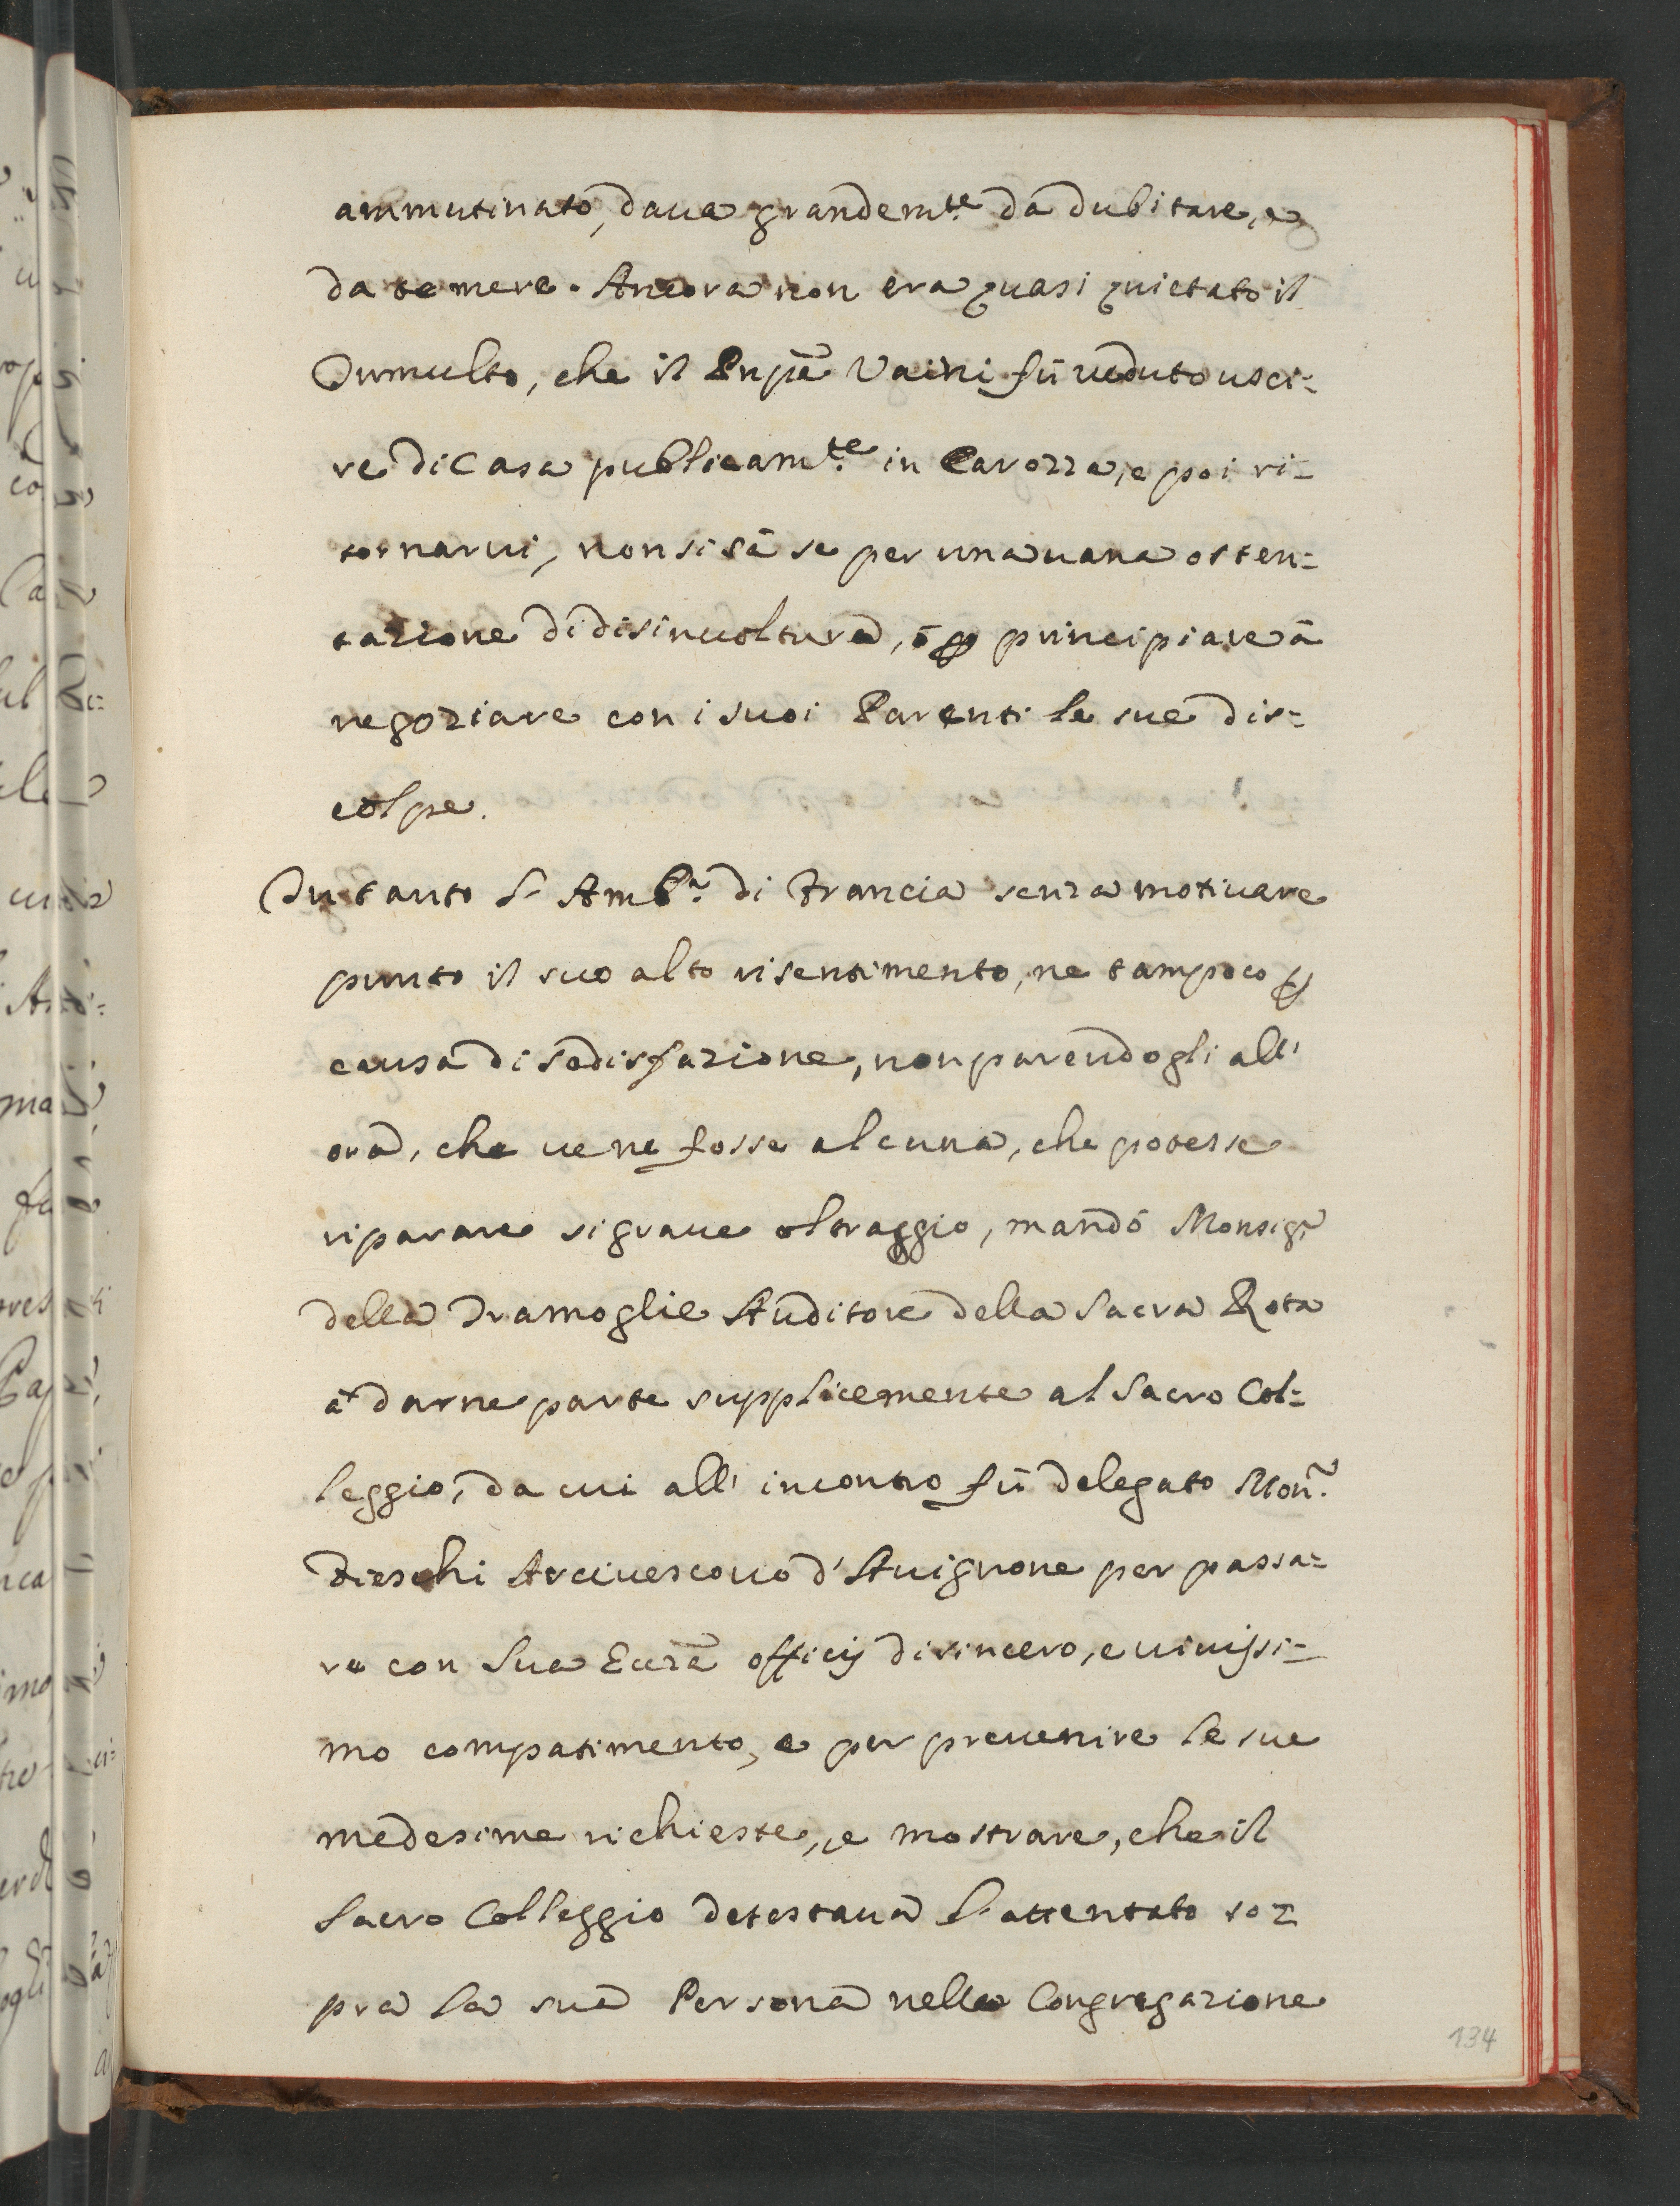 ammutinato, daua grandem.te da dubitare, e
da temere. Ancora non era quasi quietato il
Tumulto, che il Pnpē Vaini fù ueduto usci=
re di Casa publicam.te in Carozza, e poi ri=
tornarui, non si sà se per una uana osten=
tazione di disinuoltura, ò p principiare à
negoziare con i suoi Parenti le sue dis=
colpe.
Intanto l'Amb.r di Francia senza motiuare
punto il suo alto risentimento, ne tampoco p
causa di sodisfazione, non parendogli all'
ora, che ue ne fosse alcuna, che potesse
riparare si graue oltraggio, mandò Monsig.r
della Tramoglie Auditore della Sacra Rota
à darne parte supplicemente al Sacro Col=
leggio, da cui all' incontro fù delegato Mon.r
Fieschi Arciuescouo d'Auignone per passa=
re con Sua Eccza officij di sincero, e uiuissi=
mo compatimento, e per preuenire le sue
medesime richieste, e mostrare, che il
Sacro Colleggio detestaua l'attentato so=
pra la sua Persona nella Congregazione
134